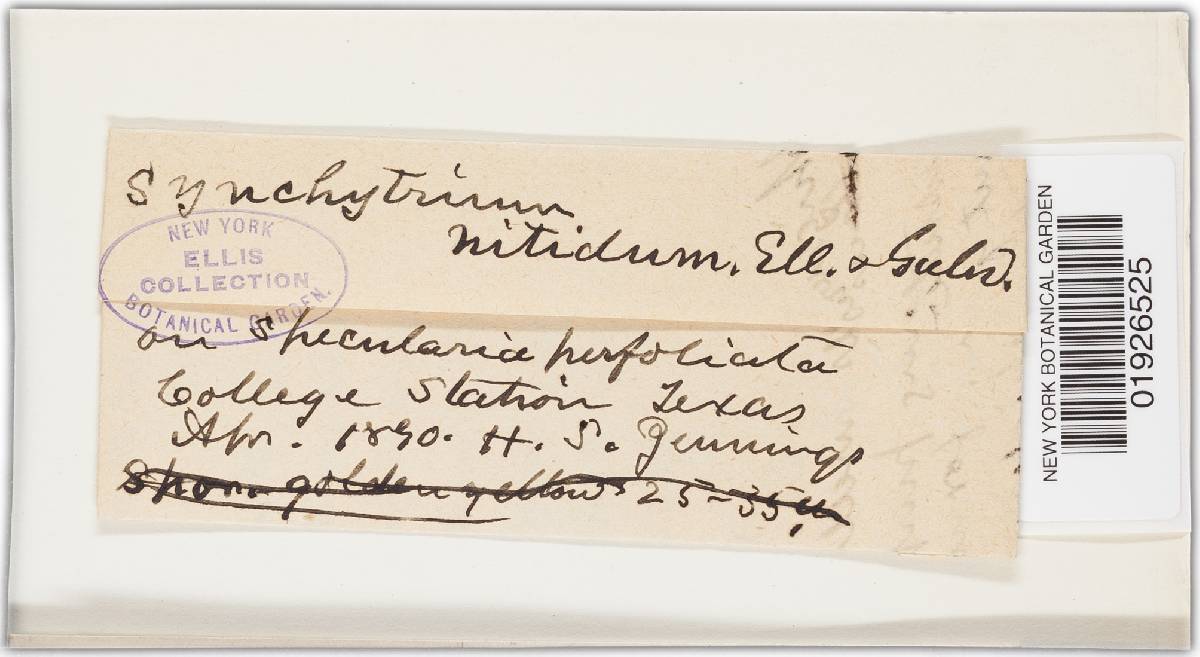 Synchytrium
nitidum. Ell. & Galw.
NEW YORK
ELLIS
COLLECTION
BOTANICAL GARDEN.
on Specularia perfoliata
College Station Texas
Apr. 1890. H. S. Jennings
Spor. golden yellow 25-35 µ
NEW YORK BOTANICAL GARDEN
01926525